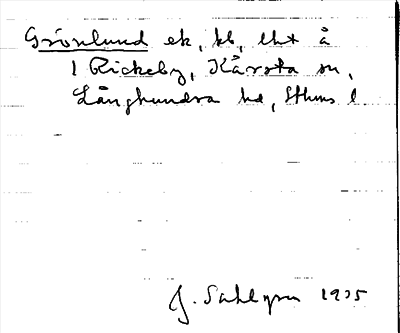 Grönlund ek, hl, lht å
1 Rickeby, Kårsta sn,
Långhundra hd, Sthms l
J. Sahlgren 1935